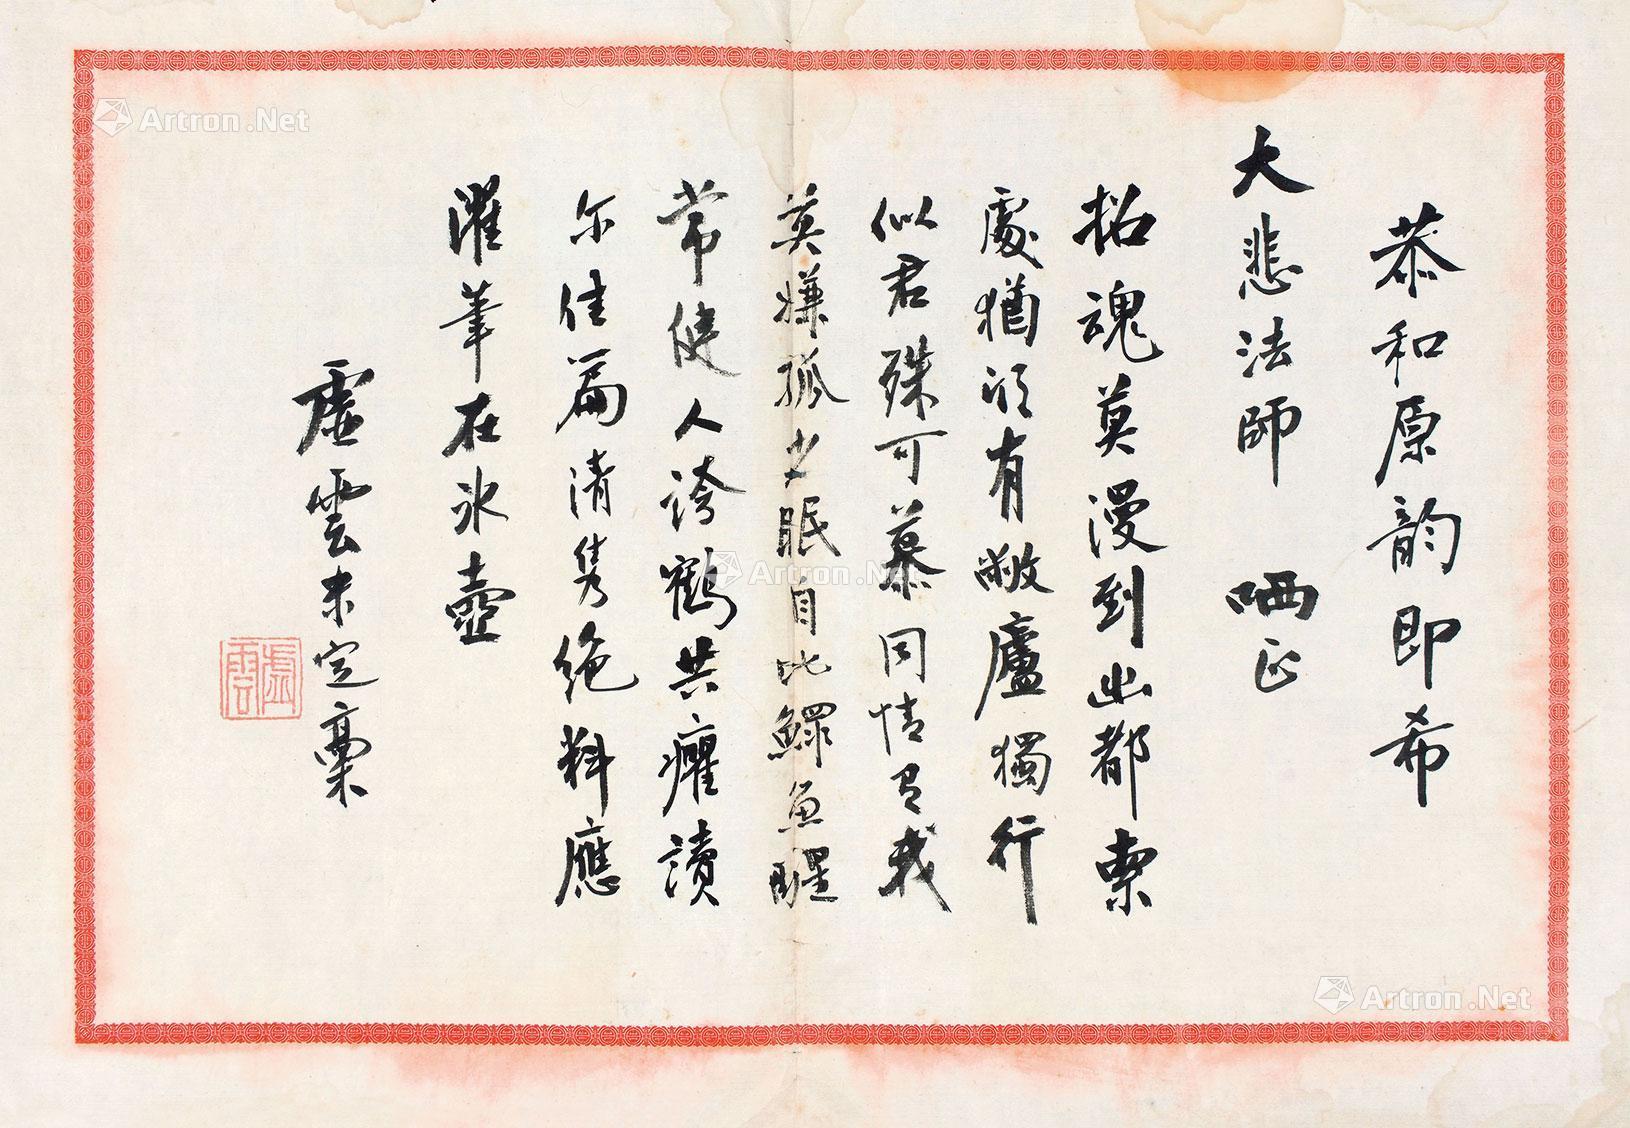 恭和原韵即希
大悲法師 哂正
招魂莫漫到幽都索
處猶須有敝廬獨行
似君殊可慕同情有我
莫嫌孤少眠自比鰥魚醒
常健人誇鶴共癯讀
尔佳篇清隽絶料應
濯筆在冰壺
虛雲未定稾
虛雲
Artron.Net
Artron.Net
Artron.Net